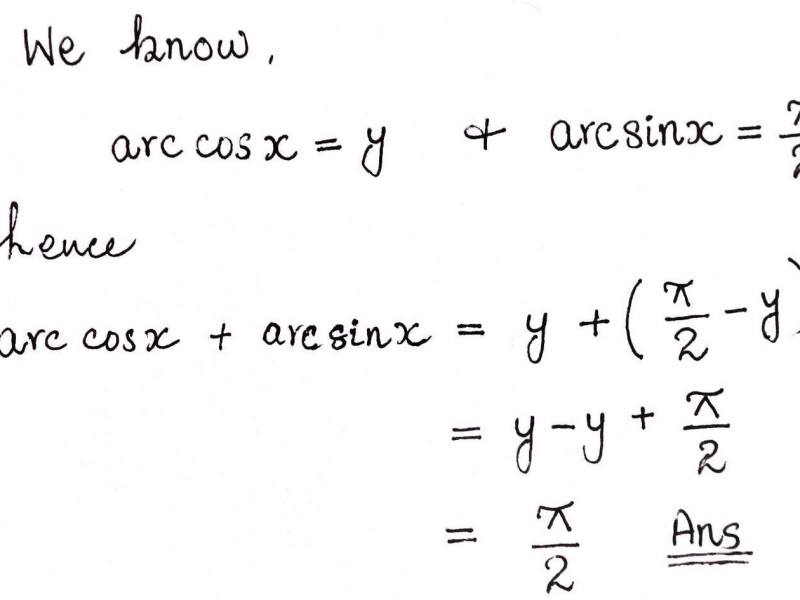 We know,
arc cos x = y & arc sin x = π/2
hence
arc cos x + arc sin x = y + (π/2 - y)
= y - y + π/2
= π/2 Ans